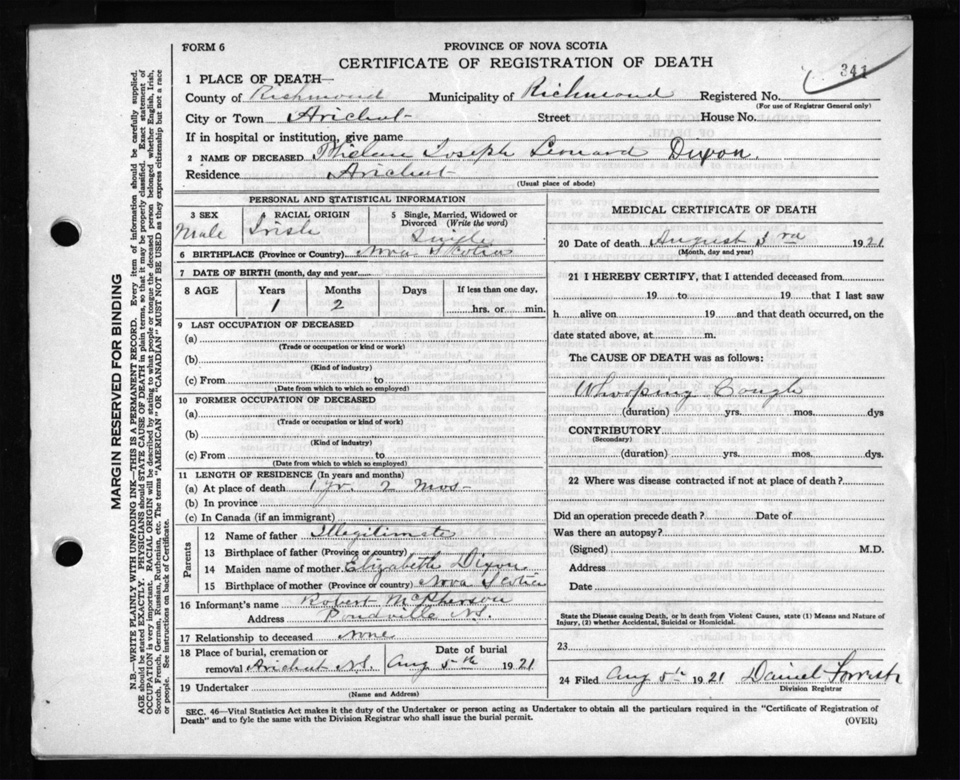 FORM 6
PROVINCE OF NOVA SCOTIA
CERTIFICATE OF REGISTRATION OF DEATH
341
1 PLACE OF DEATH—
County of Richmond Municipality of Richmond Registered No.
(For use of Registrar General only)
City or Town Arichat Street House No.
If in hospital or institution, give name
2 NAME OF DECEASED Joseph Leonard Dixon.
Residence Arichat
(Usual place of abode)
PERSONAL AND STATISTICAL INFORMATION
3 SEX Male
4 RACIAL ORIGIN Irish
5 Single, Married, Widowed or Divorced (Write the word) Single
6 BIRTHPLACE (Province or Country) Nova Scotia
7 DATE OF BIRTH (month, day and year)
8 AGE Years Months Days If less than one day,
1 2 hrs. or min.
9 LAST OCCUPATION OF DECEASED
(a)
(Trade or occupation or kind or work)
(b)
(Kind of industry)
(c) From to
(Date from which to which so employed)
10 FORMER OCCUPATION OF DECEASED
(a)
(Trade or occupation or kind of work)
(b)
(Kind of industry)
(c) From to
(Date from which to which so employed)
11 LENGTH OF RESIDENCE (In years and months)
(a) At place of death 1 yr. 2 mos-
(b) In province
(c) In Canada (if an immigrant)
Parents
12 Name of father Illegitimate
13 Birthplace of father (Province of country)
14 Maiden name of mother Elizabeth Dixon
15 Birthplace of mother (Province or country) Nova Scotia
16 Informant's name Robert McPherson
Address Pondville N.S.
17 Relationship to deceased none
18 Place of burial, cremation or Date of burial
removal Arichat N.S. Aug 5th 1921
19 Undertaker
(Name and Address)
MEDICAL CERTIFICATE OF DEATH
20 Date of death August 3rd 1921
(Month, day and year)
21 I HEREBY CERTIFY, that I attended deceased from
19 to 19 that I last saw
h alive on 19 and that death occurred, on the
date stated above, at m.
The CAUSE OF DEATH was as follows:
Whooping Cough
(duration) yrs. mos. dys
CONTRIBUTORY
(Secondary)
(duration) yrs. mos. dys.
22 Where was disease contracted if not at place of death?
Did an operation precede death? Date of
Was there an autopsy?
(Signed) M.D.
Address
Date
State the Disease causing Death, or in death from Violent Causes, state (1) Means and Nature
of Injury, (2) whether Accidental, Suicidal or Homicidal.
23
24 Filed Aug 5th 1921 Daniel Forrest
Division Registrar
SEC. 46—Vital Statistics Act makes it the duty of the Undertaker or person acting as Undertaker to obtain all the particulars required in the "Certificate of Registration of
Death" and to fyle the same with the Division Registrar who shall issue the burial permit.
(OVER)
MARGIN RESERVED FOR BINDING
N.B.—WRITE PLAINLY WITH UNFADING INK—THIS IS A PERMANENT RECORD. Every item of information should be carefully supplied.
AGE should be stated EXACTLY. PHYSICIANS should STATE CAUSE OF DEATH in plain terms, so that it may be properly classified. Exact statement of
OCCUPATION is very important. RACIAL ORIGIN will be described by stating to what people or tongue the deceased person belonged whether English, Irish,
Scotch, French, German, Russian, Ruthenian, etc. The terms "AMERICAN" OR "CANADIAN" MUST NOT BE USED as they express citizenship but not a race
or people. See instructions on back of Certificate.